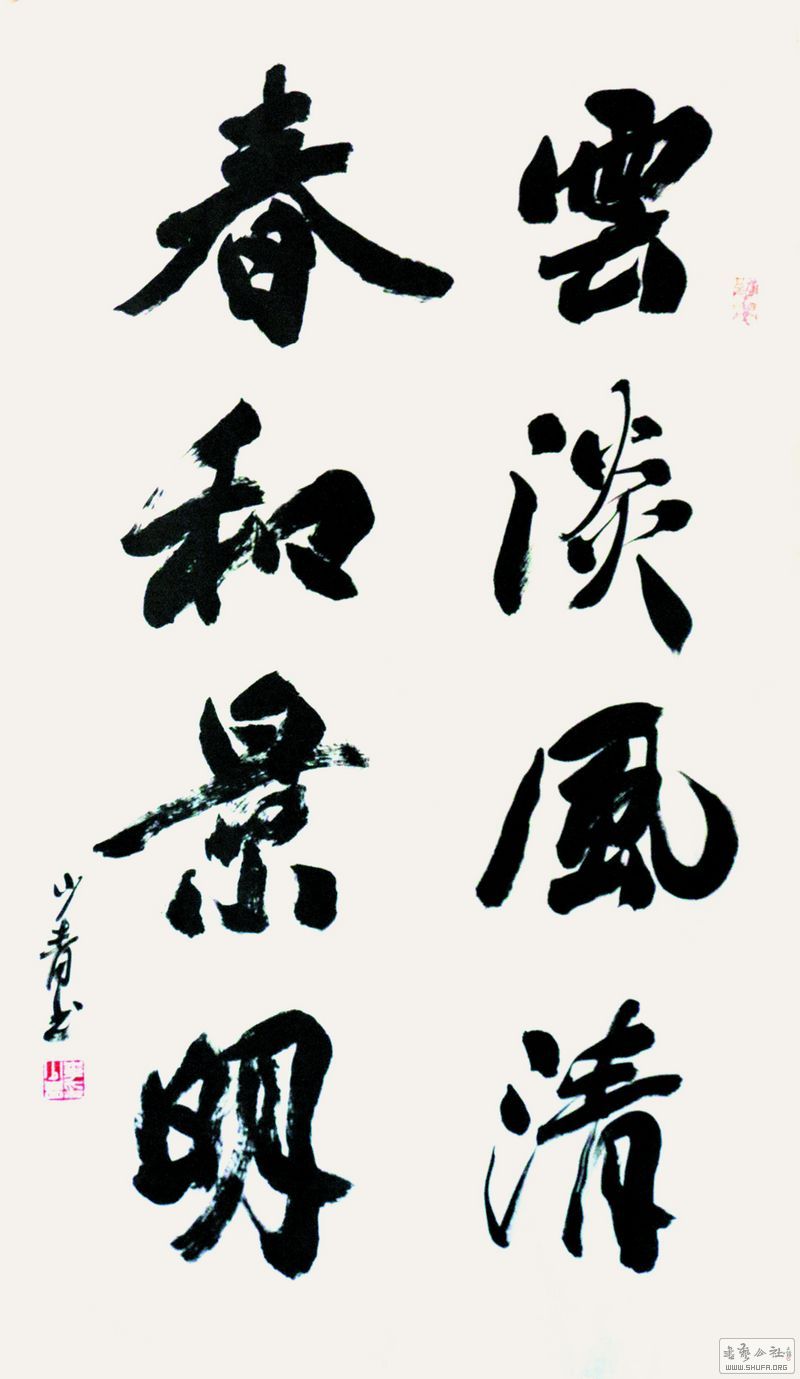 雲淡風清
春和景明
山青书
WWW.SHUFA.ORG